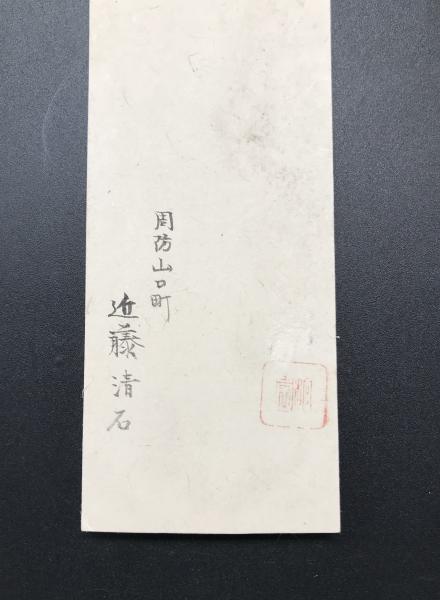 周防山口町
近藤清石